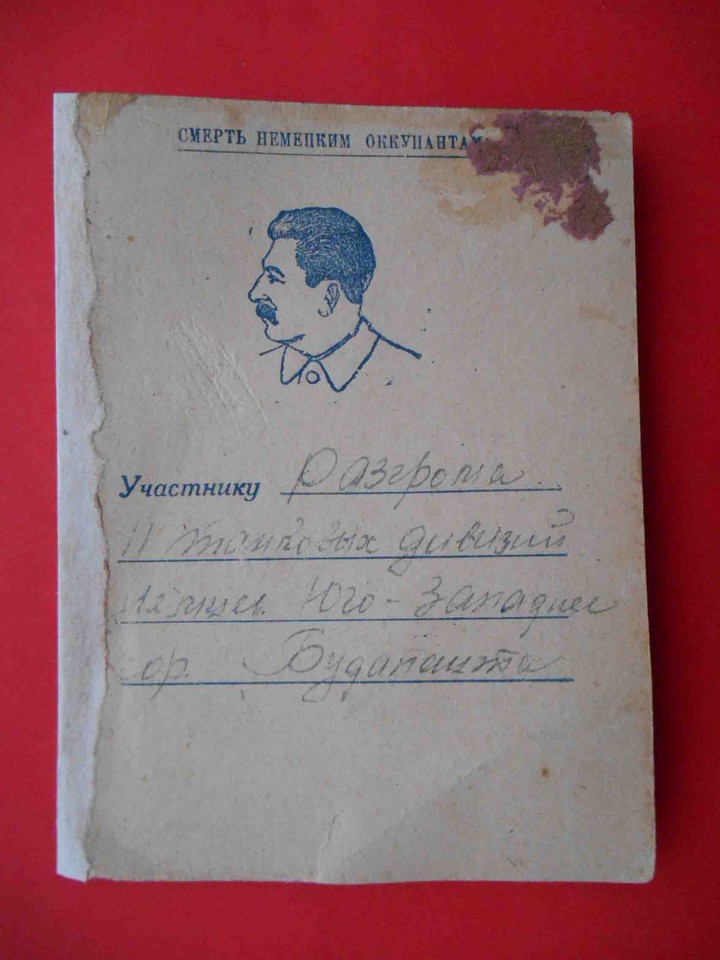 СМЕРТЬ НЕМЕЦКИМ ОККУПАНТАМ
Участнику Разгрома
11 танковых дивизий
Юго-Западнее
гор. Будапешта